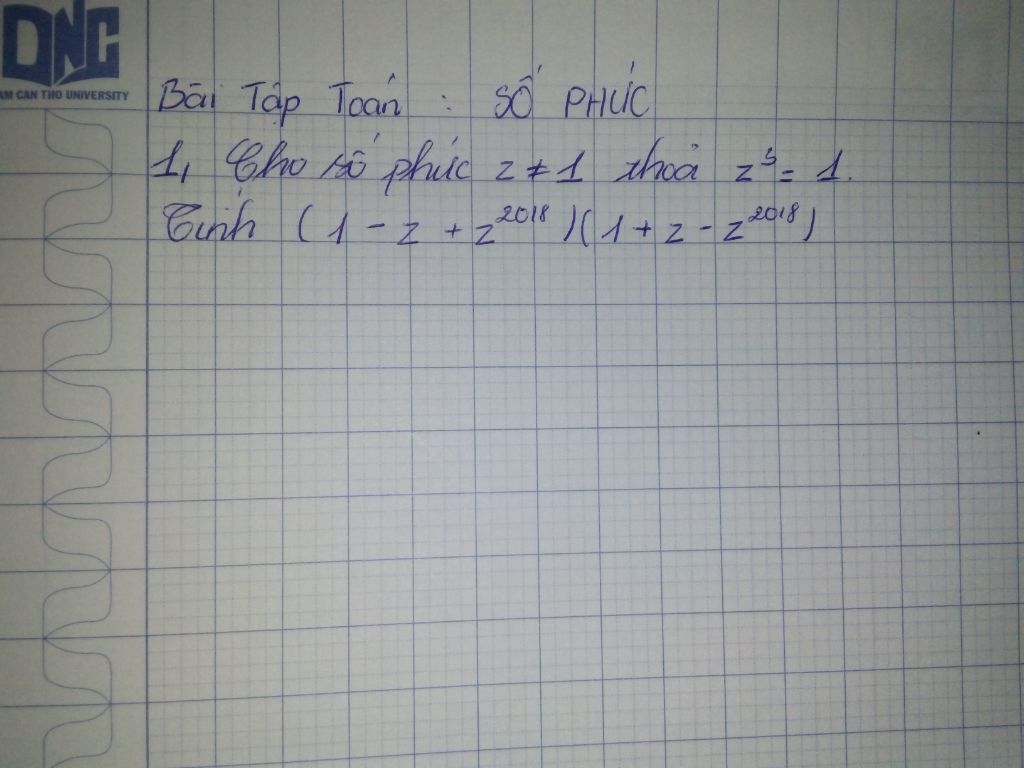 DNC
AM CAN THO UNIVERSITY
Bài Tập Toán : SỐ PHỨC
1, Cho số phức z ≠ 1 thoả z³ = 1.
Tính (1 - z + z²⁰¹⁸)(1 + z - z²⁰¹⁸)